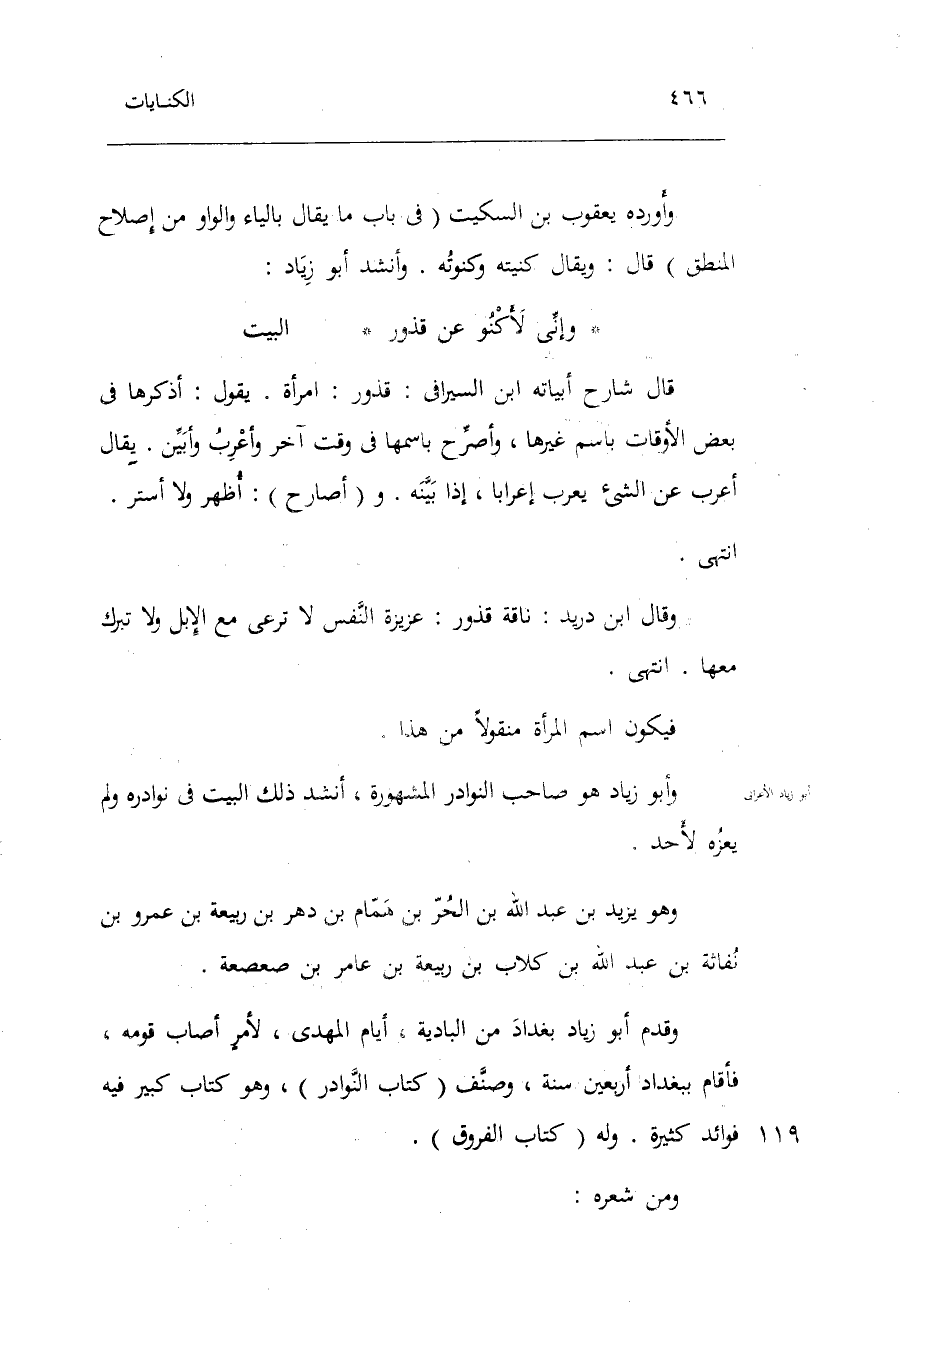 ٤٦٦ الكنايات
وأَورده يعقوب بن السكيت ( فى باب ما يقال بالياء والواو من إِصلاح
المنطق ) قال : ويقال كنيته وكنوتُه . وأنشد أبو زِيَاد :
* وإنِّى لَأَكْنُو عن قذور * البيت
قال شارح أبياته ابن السيرافى : قذور : امرأة . يقول : أذكرها فى
بعض الأوقات باسم غيرها ، وأصرِّح باسمها فى وقت آخر وأعْرِبُ وأبَيِّن . يقال
أعرب عن الشئ يعرب إعرابا ، إذا بَيَّنَه . و ( أصارح ) : أُظهر ولا أستر .
انتهى .
وقال ابن دريد : ناقة قذور : عزيزة النَّفس لا ترعى مع الإِبل ولا تبرك
معها . انتهى .
فيكون اسم المرأة منقولاً من هذا .
وأبو زياد هو صاحب النوادر المشهورة ، أنشد ذلك البيت فى نوادره ولم أبو زياد الأعرابى
يعزُه لأَحد .
وهو يزيد بن عبد الله بن الحُرّ بن هَمّام بن دهر بن ربيعة بن عمرو بن
نُفاثة بن عبد الله بن كلاب بن ربيعة بن عامر بن صعصعة .
وقدم أبو زياد بغدادَ من البادية ، أيام المهدى ، لأمرٍ أصاب قومه ،
فأقام ببغداد أربعين سنة ، وصنَّف ( كتاب النَّوادر ) ، وهو كتاب كبير فيه
١١٩ فوائد كثيرة . وله ( كتاب الفروق ) .
ومن شعره :